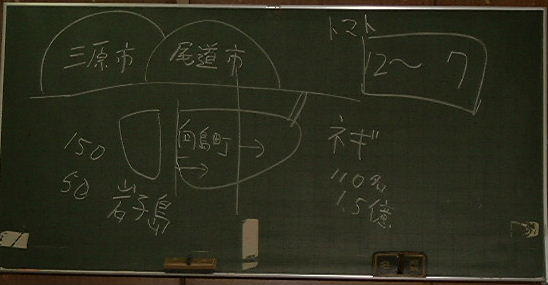 三原市
尾道市
トマト
12～ 7
向島町
ネギ
150
50
岩子島
110名
1.5億